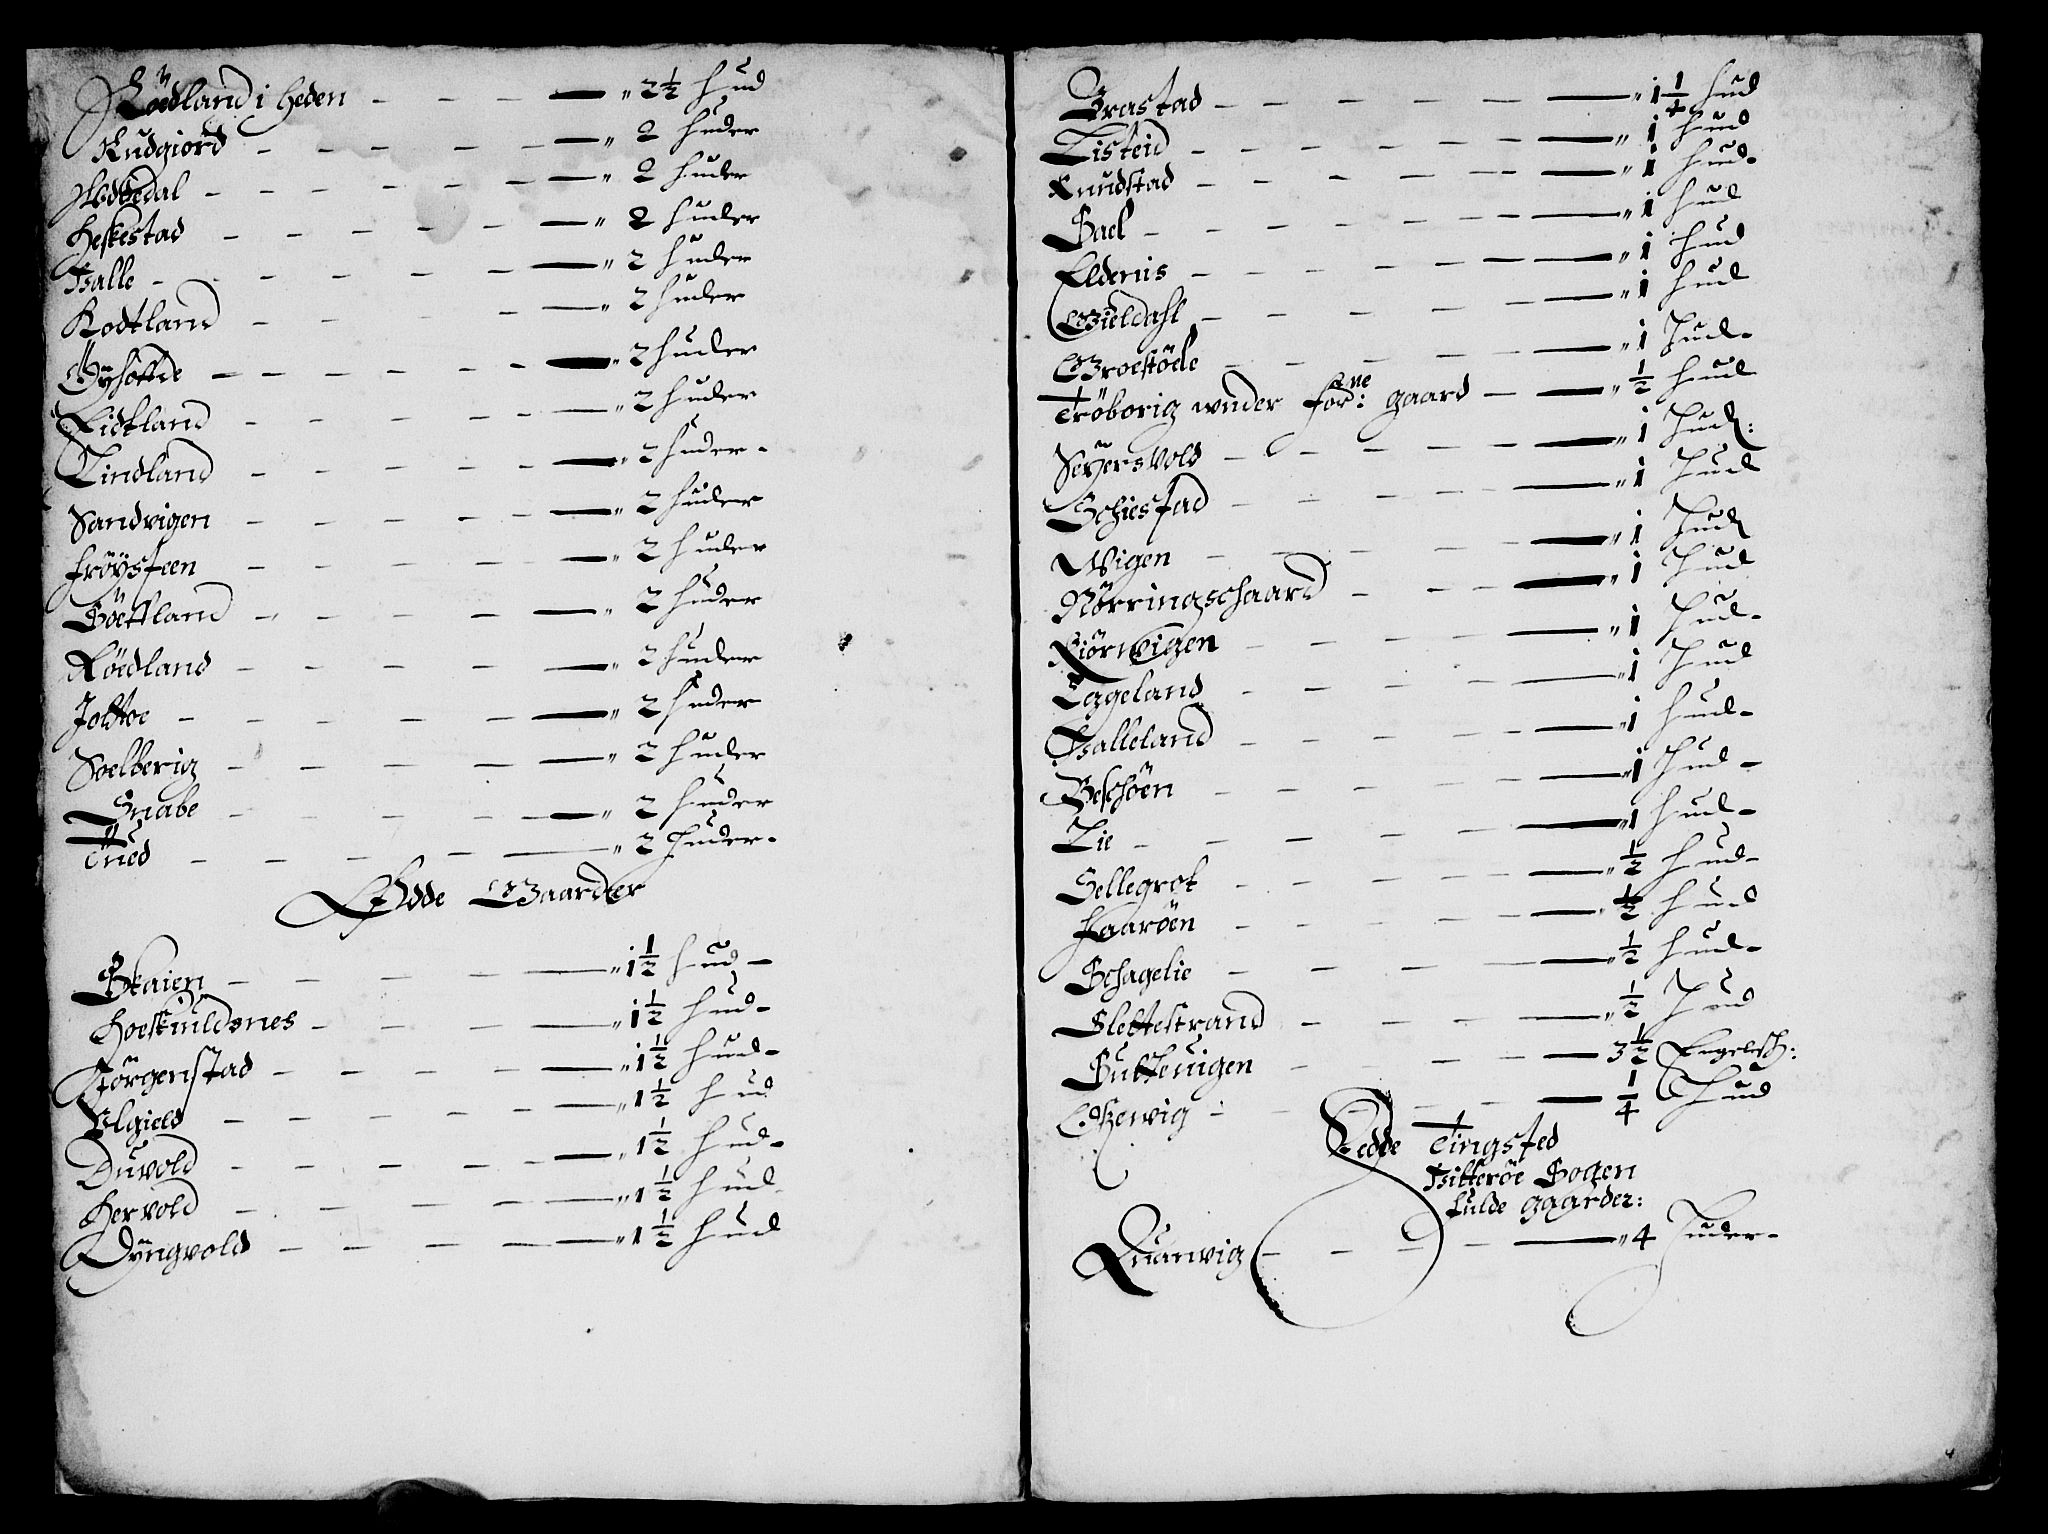 Röedland i Heden — 2½ Hud
Rudgiord — 2 Huder
Ødbedal — 2 Huder
Heskestad — 2 Huder
Halle — 2 Huder
Rodtland — 2 Huder
Gÿsotte — 2 Huder
Eidtland — 2 Huder
Lindland — 2 Huder-
Sandvigen — 2 Huder
Fröÿsteen — 2 Huder
Söetland — 2 Huder
Röedland — 2 Huder
Joltoe — 2 Huder
Soelberig — 2 Huder
Snabe — 2 Huder
Tued — 2 Huder-
Ødde Gaarder
Skaien — i½ Hud-
Hoeskuldsnes — i½ Hud-
Jörgenstad — i½ Hud-
Ulgield — 1½ Hud
Duvold — 1½ Hud-
Hervold — 1½ Hud-
Dÿngvold — 1½ Hud
Brastad — i¼ Hud
Listeid — i Hud
Knudstad — i Hud-
Bael — i Hud
Eldenis — i Hud
Gieldahl — i Hud
Groestöele — i Hud-
Tröborig wnder for:ne gaard — ½ Hud
Seÿersvold — i Hud:
Schiestad — i Hud
Wigen — i Hud
Nörringschaard — i Hud
Kiörwigen — i Hud-
Eggeland — i Hud
Halleland — i Hud-
Beschöen — i Hud-
Lie — i Hud-
Sellegrot — ½ Hud-
Haaröen — ½ Hud
Schagelie — ½ Hud-
Slettestrand — ½ Hud
Suttevigen — 3½ Engelsch:
— ¼ Hud
Fedde Tingsted
Hitteröe Sogen
Fulde gaarder:
Quanwig — 4 Huder-